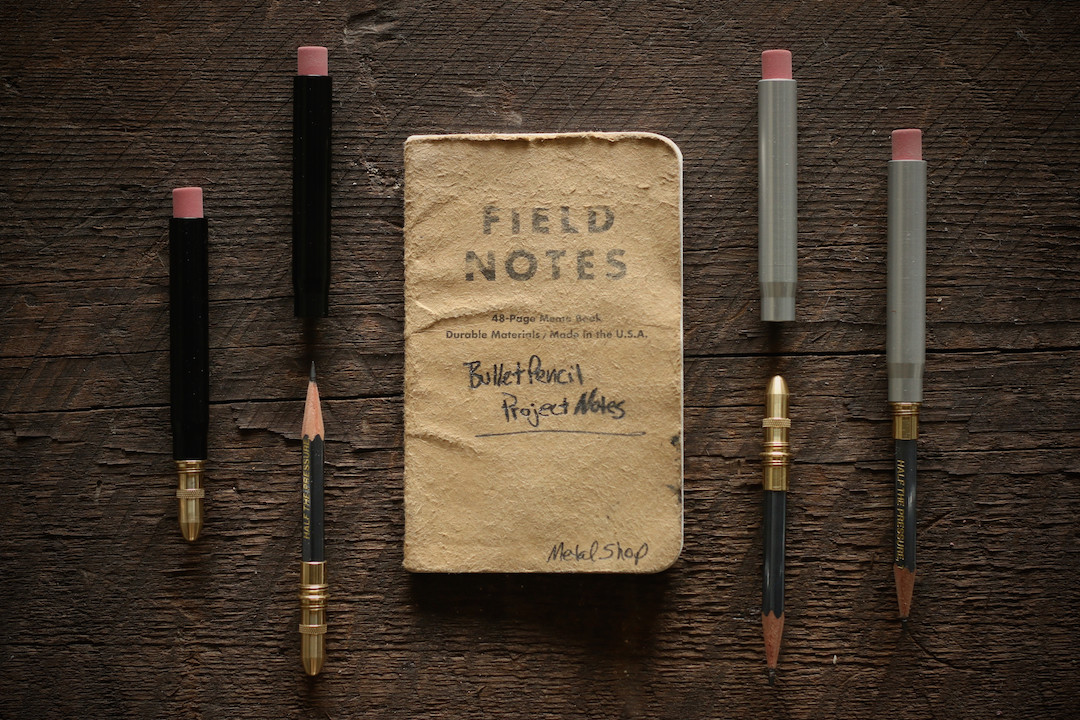 FIELD
NOTES
48-Page Memo Book
Durable Materials / Made in the U.S.A.
Bullet Pencil
Project Notes
Metal Shop
HALF THE PRESSURE
HALF THE PRESSURE,